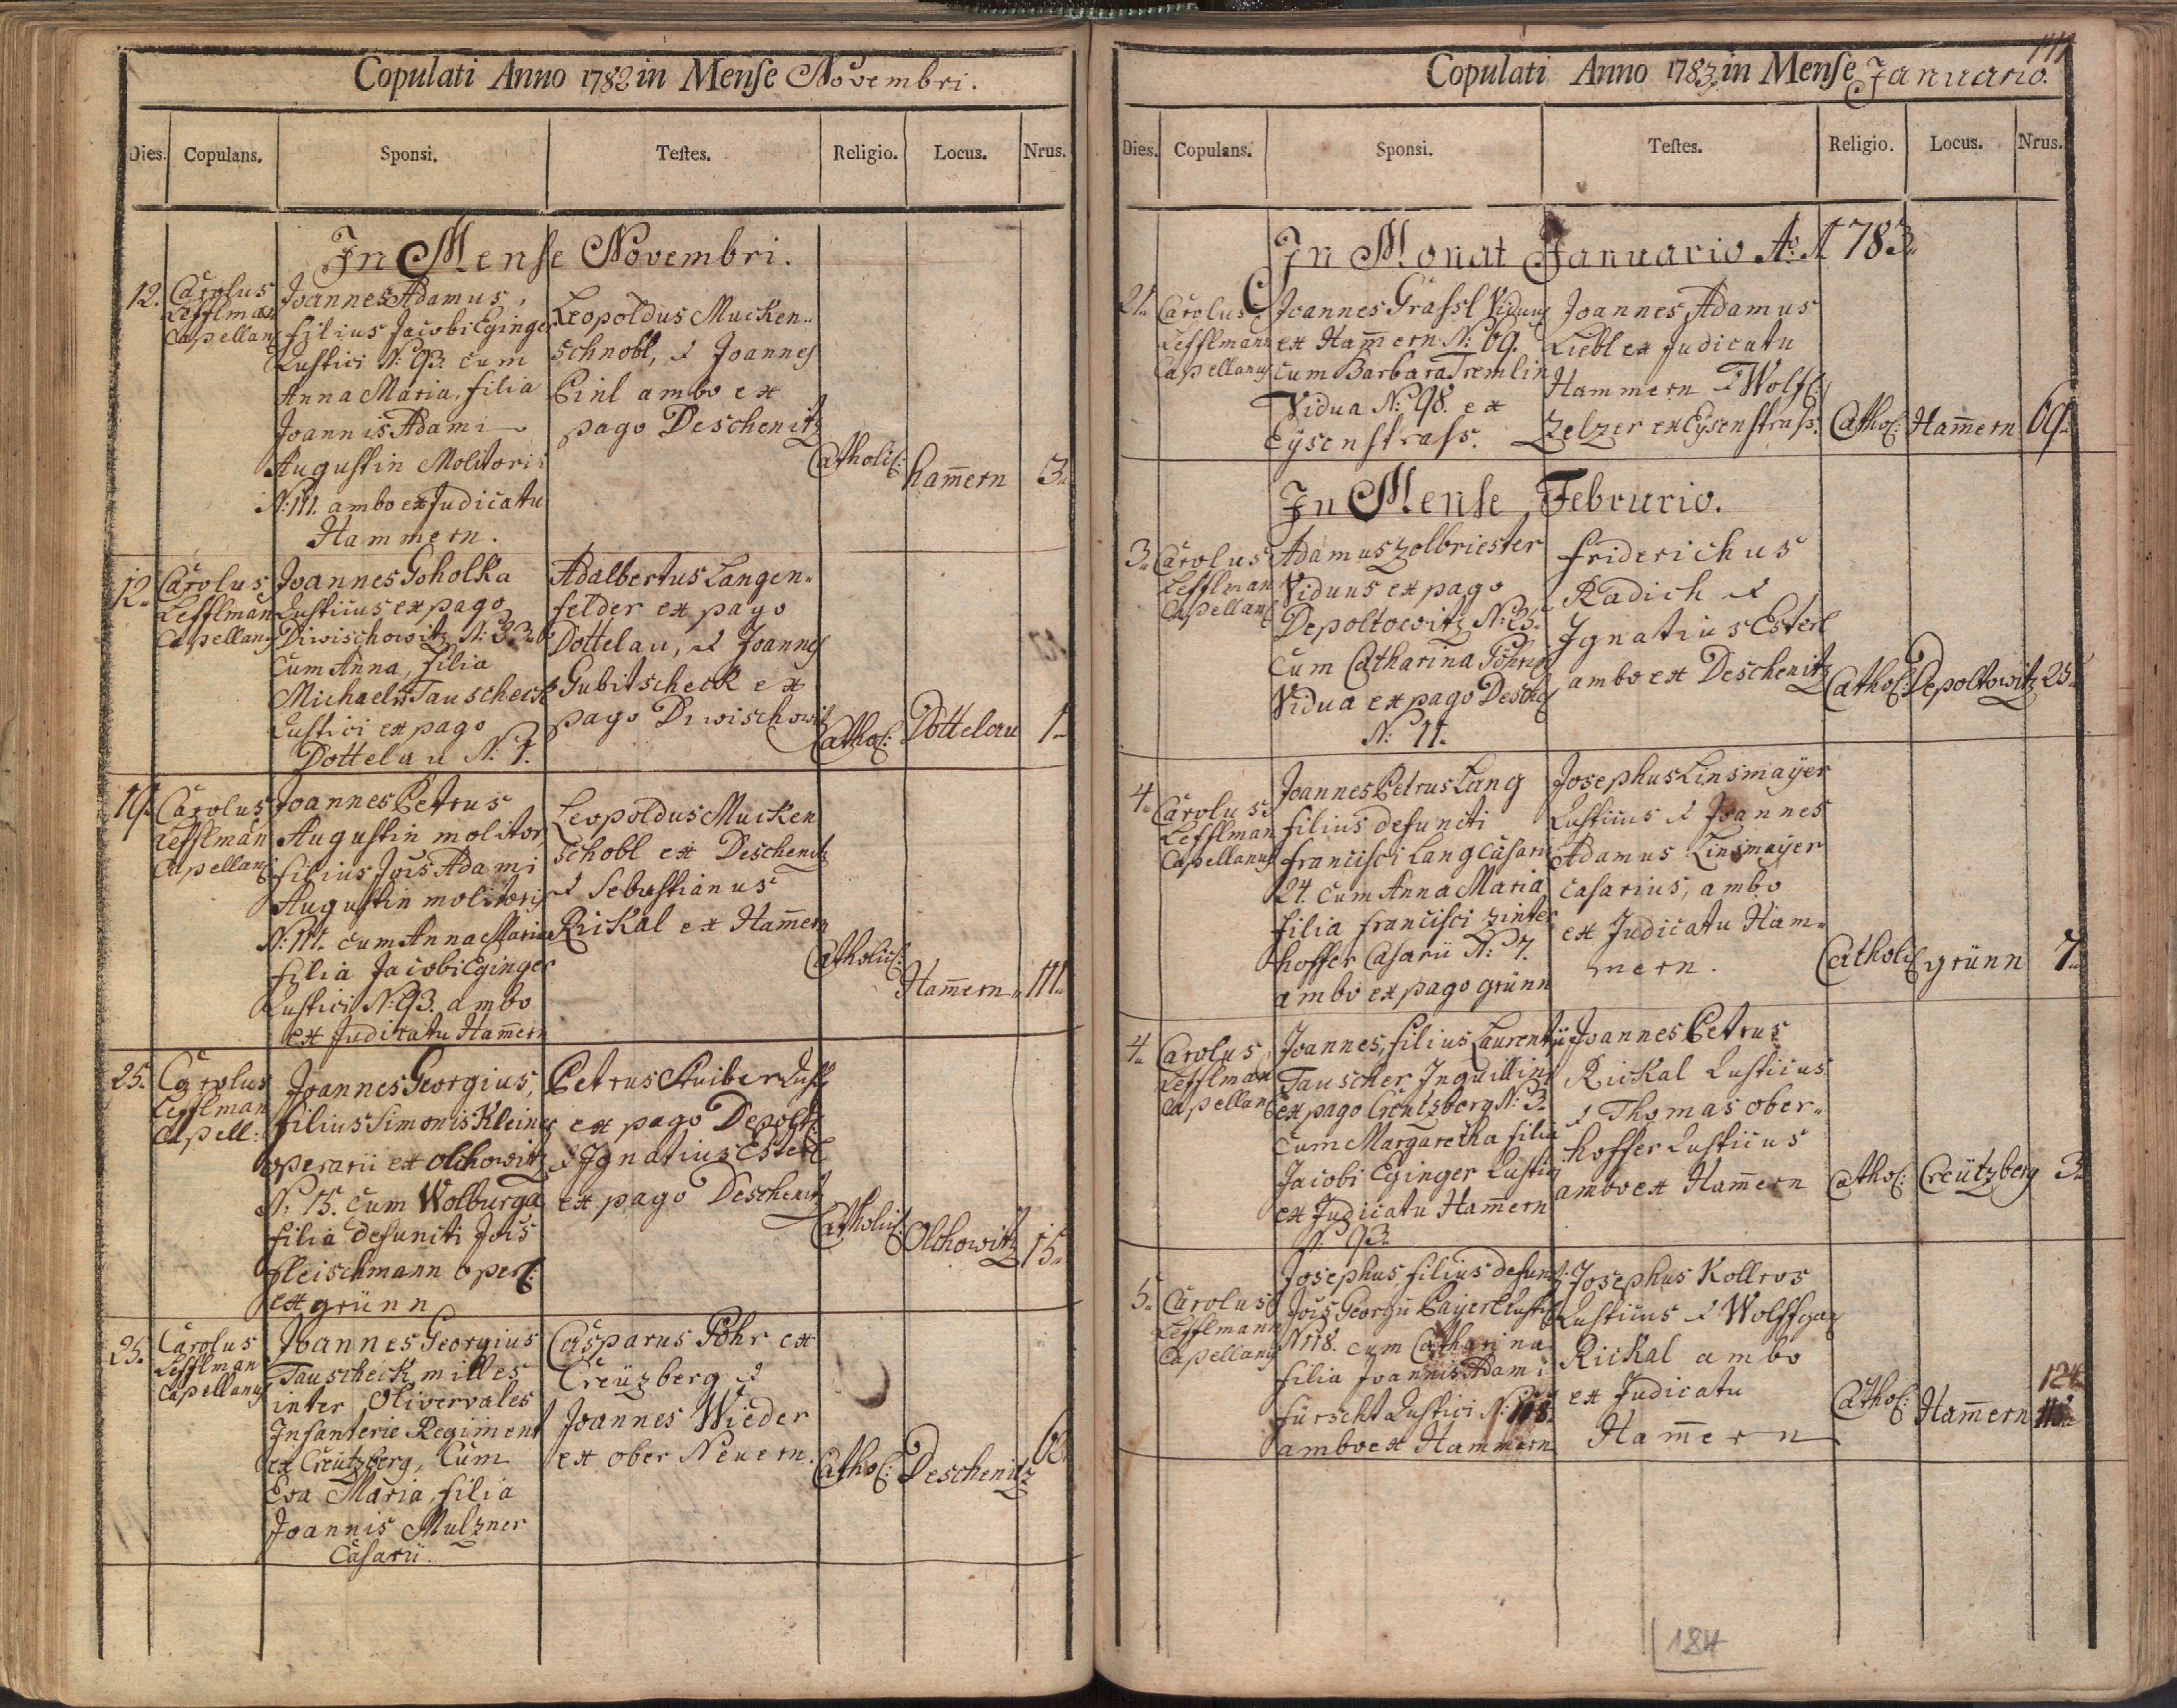 Copulati Anno 1782 in Mense Novembri.
Dies. Copulans. Sponsi. Testes. Religio. Locus. Nrus.
In Mense Novembri.
12. Carolus Lefflman Capellanus
Joannes Adamus,
filius Jacobi Eginger
Rustici N: 93. cum
Anna Maria, filia
Joannis Adami
Augustin Molitoris
N: 111. ambo ex Judicatu
Hammern.
Leopoldus Mucken„
schnobl, & Joannes
Einl ambo ex
pago Deschenitz
Catholic: Ham̄ern 3„
12„ Carolus Lefflman Capellanus
Joannes Goholka
Rusticus ex pago
Diwischowitz N: 33„
cum Anna, filia
Michaelis Tauscheck
Rustici ex pago
Dottelau N. 1.
Adalbertus Langen„
felder ex pago
Dottelau, & Joannes
Gubitscheck ex
pago Diwischowitz
Cathol: Dottelau 1„
19„ Carolus Lefflman Capellan9
Joannes Petrus
Augustin molitor,
filius Jois Adami
Augustin molitoris
N: 111. cum Anna Maria
filia Jacobi Eginger
Rustici N: 93. ambo
ex Judicatu Ham̄ern
Leopoldus Mucken
schobl ex Deschenitz
& Sebastianus
Rickal ex Ham̄ern
Catholic: Ham̄ern„ 111„
25. Carolus Lefflman Capell:
Joannes Georgius,
filius Simonis Kleiner
operarii ex Olchowitz
N. 15. cum Wolburga
filia defuncti Jois
Fleischmann oper:
ex grünn
Petrus Stuiber Rust:
ex pago Depolt:
& Ignatius Esterl
ex pago Deschenitz
Catholic: Olchowitz 15„
25. Carolus Lefflman Capellanus
Joannes Georgius
Tauscheck milles
inter Olivervales
Infanterie Regiment
ex Creützberg, Cum
Eva Maria, filia
Joannis Mulzner
Casarii.
Casparus Pöhr ex
Creüzberg &
Joannes Wieder
ex ober Neuern.
Cathol: Deschenitz
Copulati Anno 1783 in Mense Januario.
Dies. Copulans. Sponsi. Testes. Religio. Locus. Nrus.
In Monat Januario Ao. 1783„
21„ Carolus Lefflmann Capellanus
Joannes Grassl Viduus
ex Ham̄ern N: 69.
cum Barbara Tremlin
Vidua N: 98. ex
Eysenstrass.
Joannes Adamus
Liebl ex Judicatu
Hammern & Wolfg:
Zelzer ex Eysenstrass.
Cathol: Ham̄ern 69„
In Mense Februrio.
3„ Carolus Lefflman Capellanus
Adamus Zolbriester
Viduus ex pago
Depoltowitz N: 25„
cum Catharina Pöhrin
Vidua ex pago Desch:
N: 11.
Friderichus
Radich &
Ignatius Esterl
ambo ex Deschenitz
Cathol: Depoltowitz 25„
4„ Carolus Lefflman Capellanus
Joannes Petrus Lang
filius defuncti
Francisci Lang Casarii
24. cum Anna Maria
filia Francisci Zinter
hoffer Casarii N: 7.
ambo ex pago grünn
Josephus Linsmayer
Rusticus & Joannes
Adamus Linsmayer
casarius, ambo
ex Judicatu Ham„
mern.
Cathol: grünn 7„
4„ Carolus Lefflman Capellan9
Joannes, filius Laurentii
Tauscher Inquillini
ex pago Creutzberg N: 3„
cum Margaretha filia
Jacobi Eginger Rustici
ex Judicatu Ham̄ern
N: 93.
Joannes Petrus
Rickal Rusticus
& Thomas ober„
hoffer Rusticus
ambo ex Ham̄ern
Cathol: Creützberg 3„
5„ Carolus Lefflmann Capellanus
Josephus, filius defunct:
Jois Georgii Payerl Rustici
N 118. cum Catharina
filia Joannis Adami
Fürscht Rustici N: 118.
ambo ex Hammern
Josephus Kollros
Rusticus & Wolffgang
Rickal ambo
ex Judicatu
Ham̄ern
Cathol: Ham̄ern
124
184